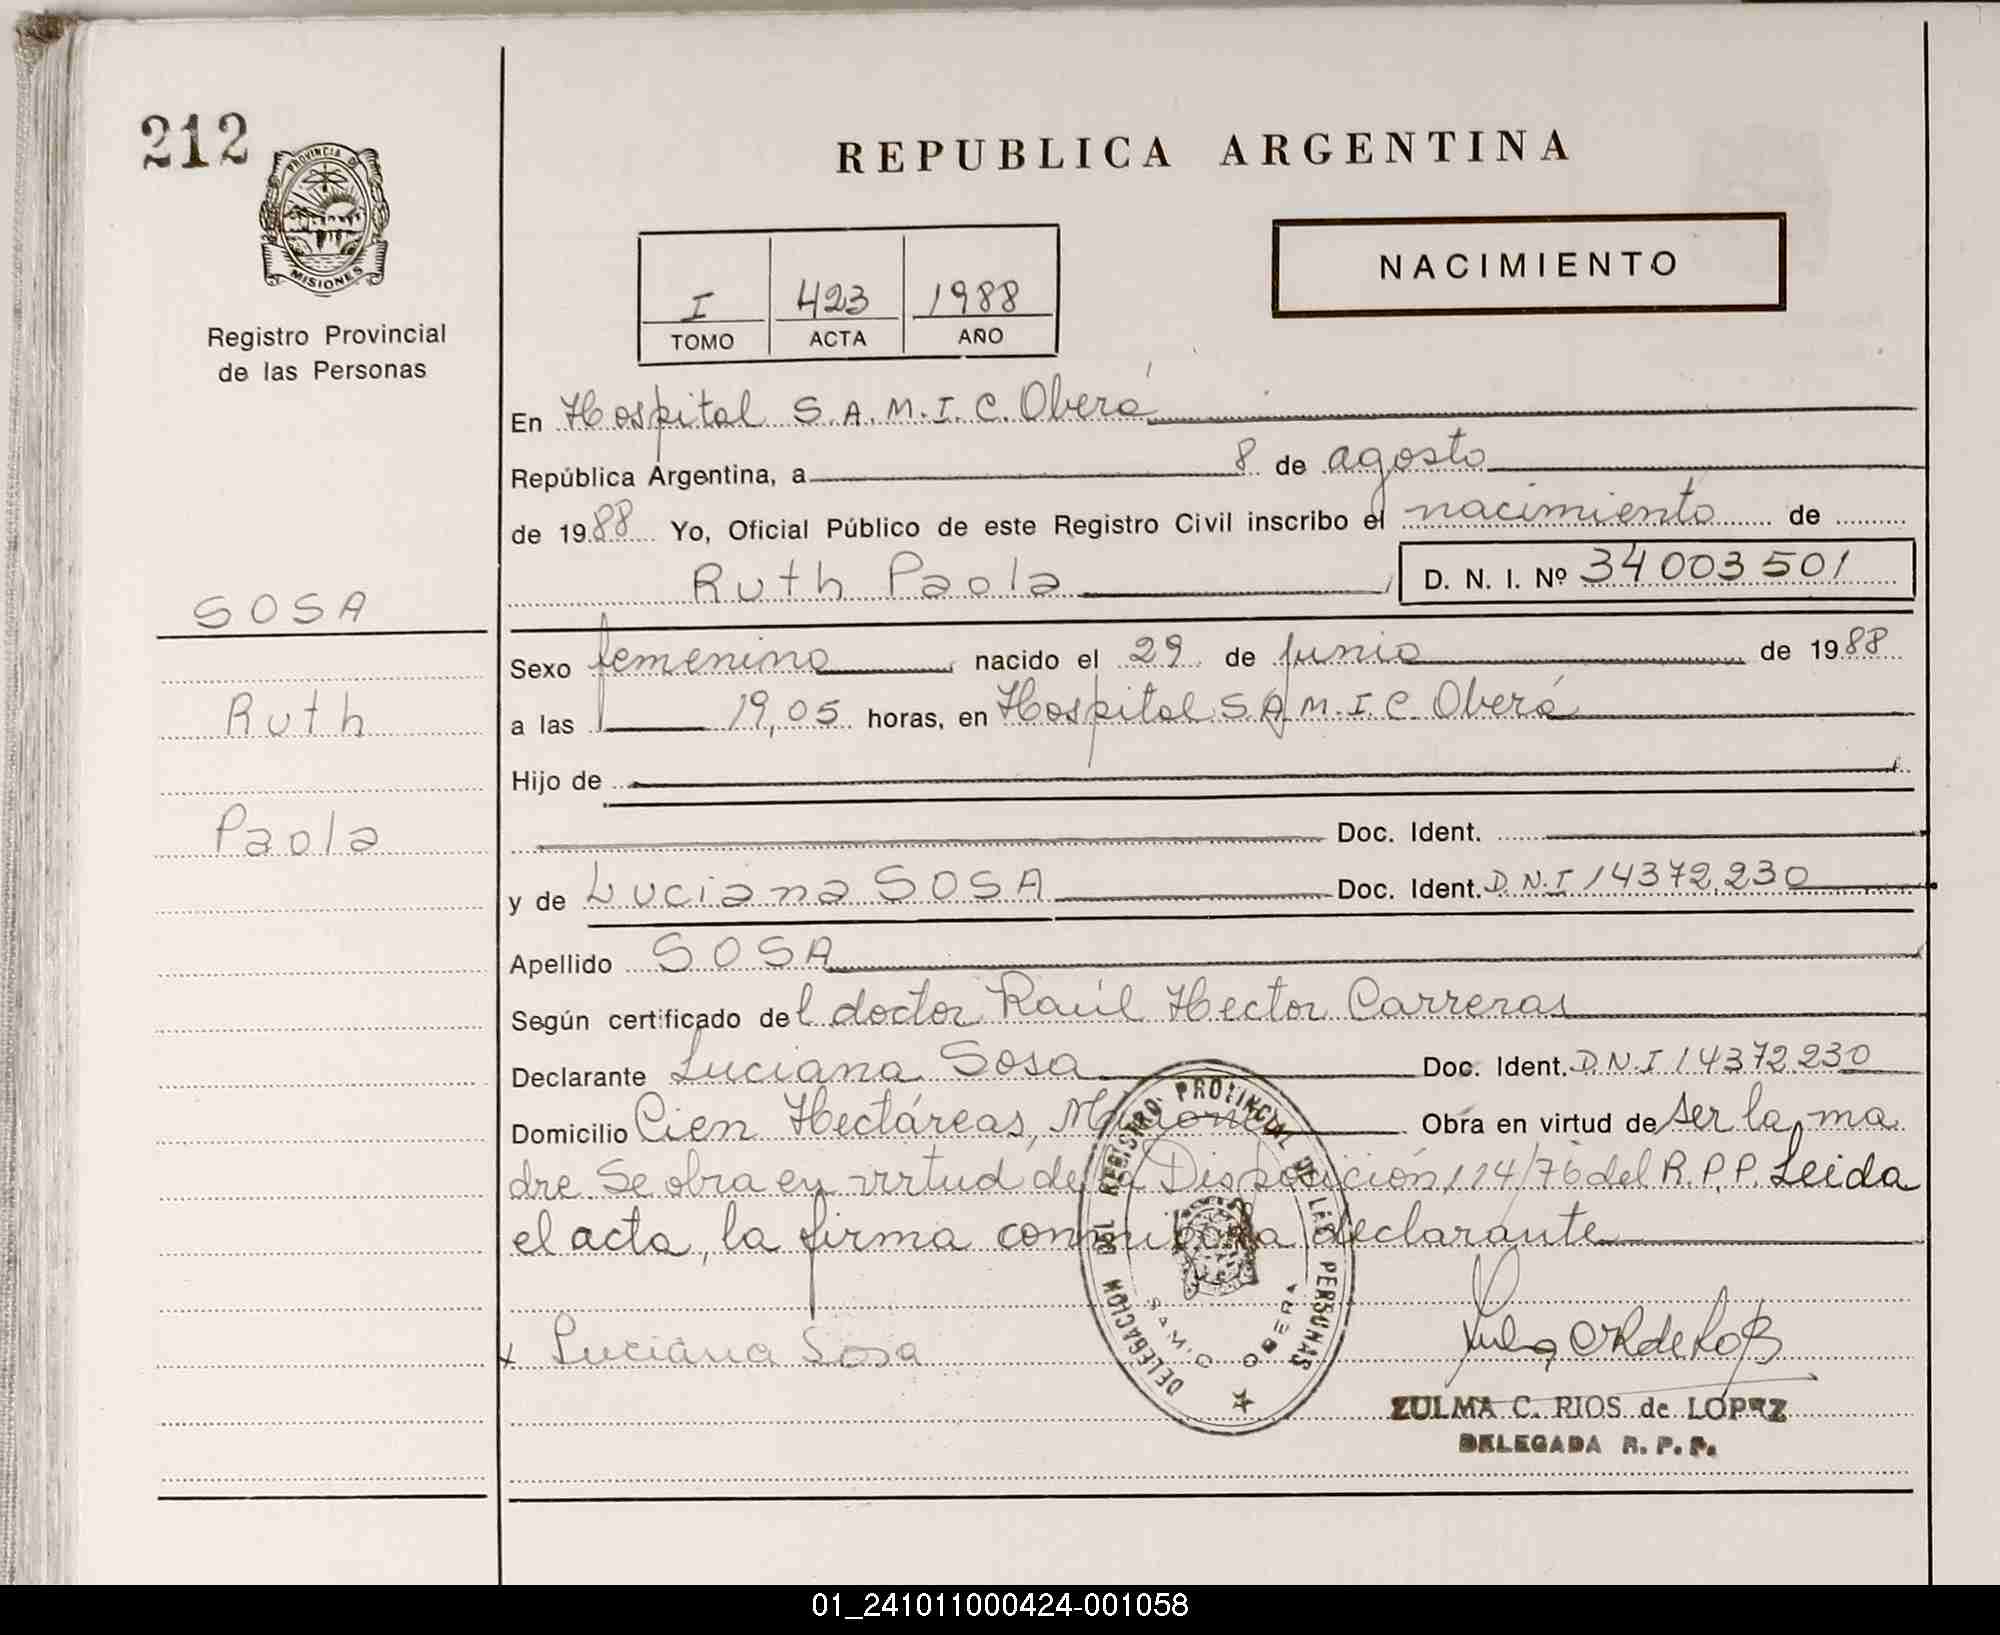 212
PROVINCIA DE
MISIONES
Registro Provincial
de las Personas
REPUBLICA ARGENTINA
NACIMIENTO
I 423 1988
TOMO ACTA AÑO
En Hospital S.A.M.I.C. Oberá
República Argentina, a 8 de agosto
de 1988 Yo, Oficial Público de este Registro Civil inscribo el nacimiento de
Ruth Paola D. N. I. Nº 34003501
SOSA
Sexo femenino nacido el 29 de junio de 1988
Ruth
a las 19,05 horas, en Hospital S.A.M.I.C. Oberá
Hijo de
Paola
Doc. Ident.
y de Luciana SOSA Doc. Ident. D.N.I 14372.230
Apellido SOSA
Según certificado del doctor Raúl Hector Carreras
Declarante Luciana Sosa Doc. Ident. D.N.I 14372230
Domicilio Cien Hectáreas, Misiones Obra en virtud de ser la ma
dre. Se obra en virtud de la Disposición 124/76 del R.P.P. Leida
el acta, la firma conmigo la declarante
x Luciana Sosa
DELEGACION DEL REGISTRO PROVINCIAL DE LAS PERSONAS
S.A.M.I.C. OBERA
ZULMA C. RIOS de LOPEZ
DELEGADA R. P. P.
01_241011000424-001058